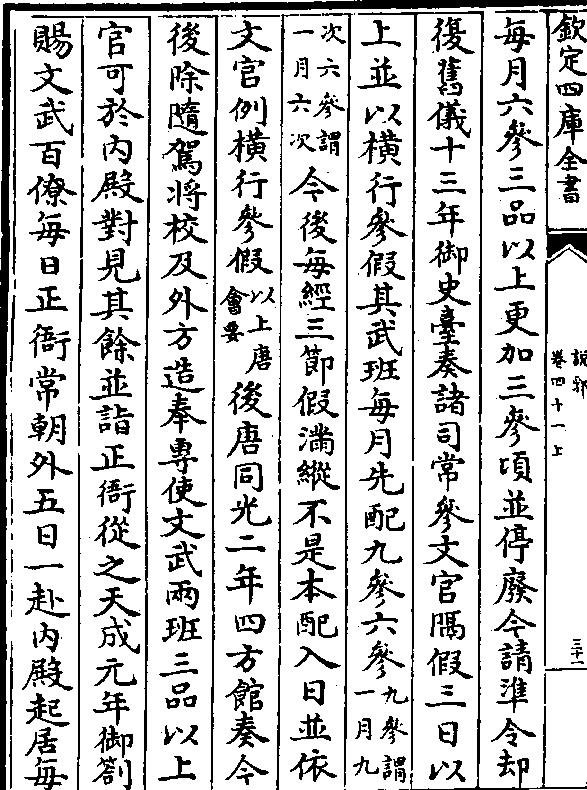 欽定四庫全書
說郛
卷四十一上
三十一
每月六參三品以上更加三參頃並停廢今請準令却
復舊儀十三年御史臺奏諸司常參文官隔假三日以
上並以橫行參假其武班每月先配九參六參九參謂一月九
次六參謂一月六次今後每經三節假滿縱不是本配入日並依
文官例橫行參假以上唐會要後唐同光二年四方館奏今
後除隨駕將校及外方進奉專使文武兩班三品以上
官可於內殿對見其餘並詣正衙從之天成元年御劄
賜文武百僚每日正衙常朝外五日一赴內殿起居每